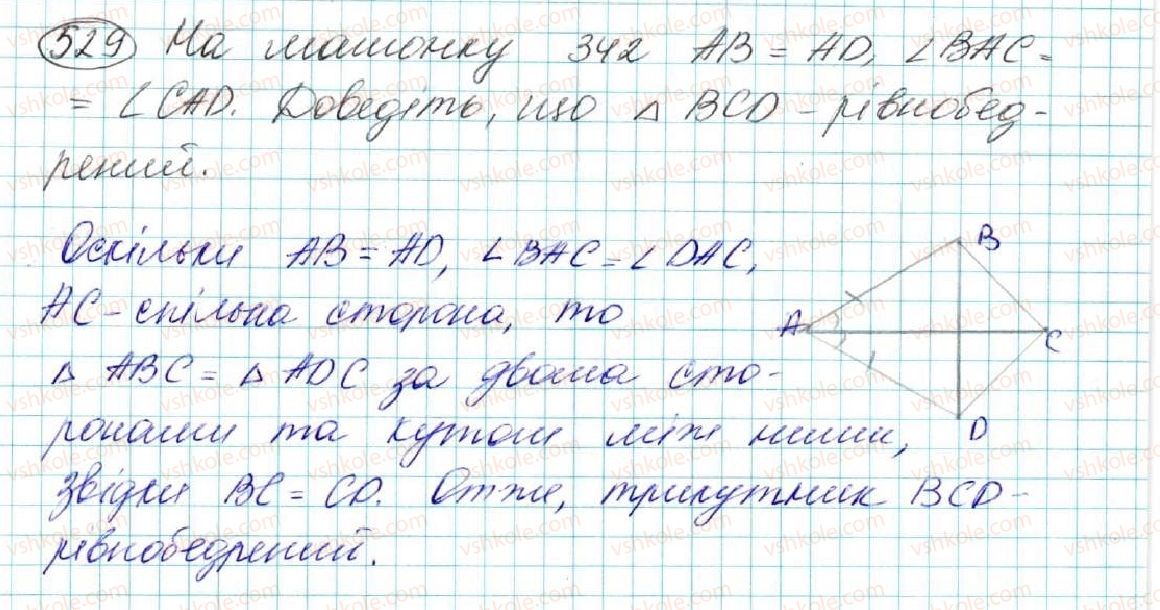 529 На малюнку 342 AB = AD, ∠BAC =
= ∠CAD. Доведіть, що △ BCD - рівнобед-
рений.
Оскільки AB = AD, ∠BAC = ∠DAC,
AC - спільна сторона, то
△ ABC = △ ADC за двома сто-
ронами та кутом між ними,
звідки BC = CD. Отже, трикутник BCD -
рівнобедрений.
B
A
C
D
vshkole.com